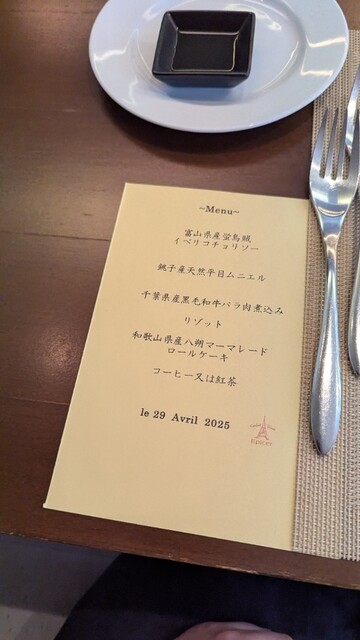 ~Menu~
富山県産蛍烏賊
イベリコチョリソー
銚子産天然平目ムニエル
千葉県産黒毛和牛バラ肉煮込み
リゾット
和歌山県産八朔マーマレード
ロールケーキ
コーヒー又は紅茶
le 29 Avril 2025